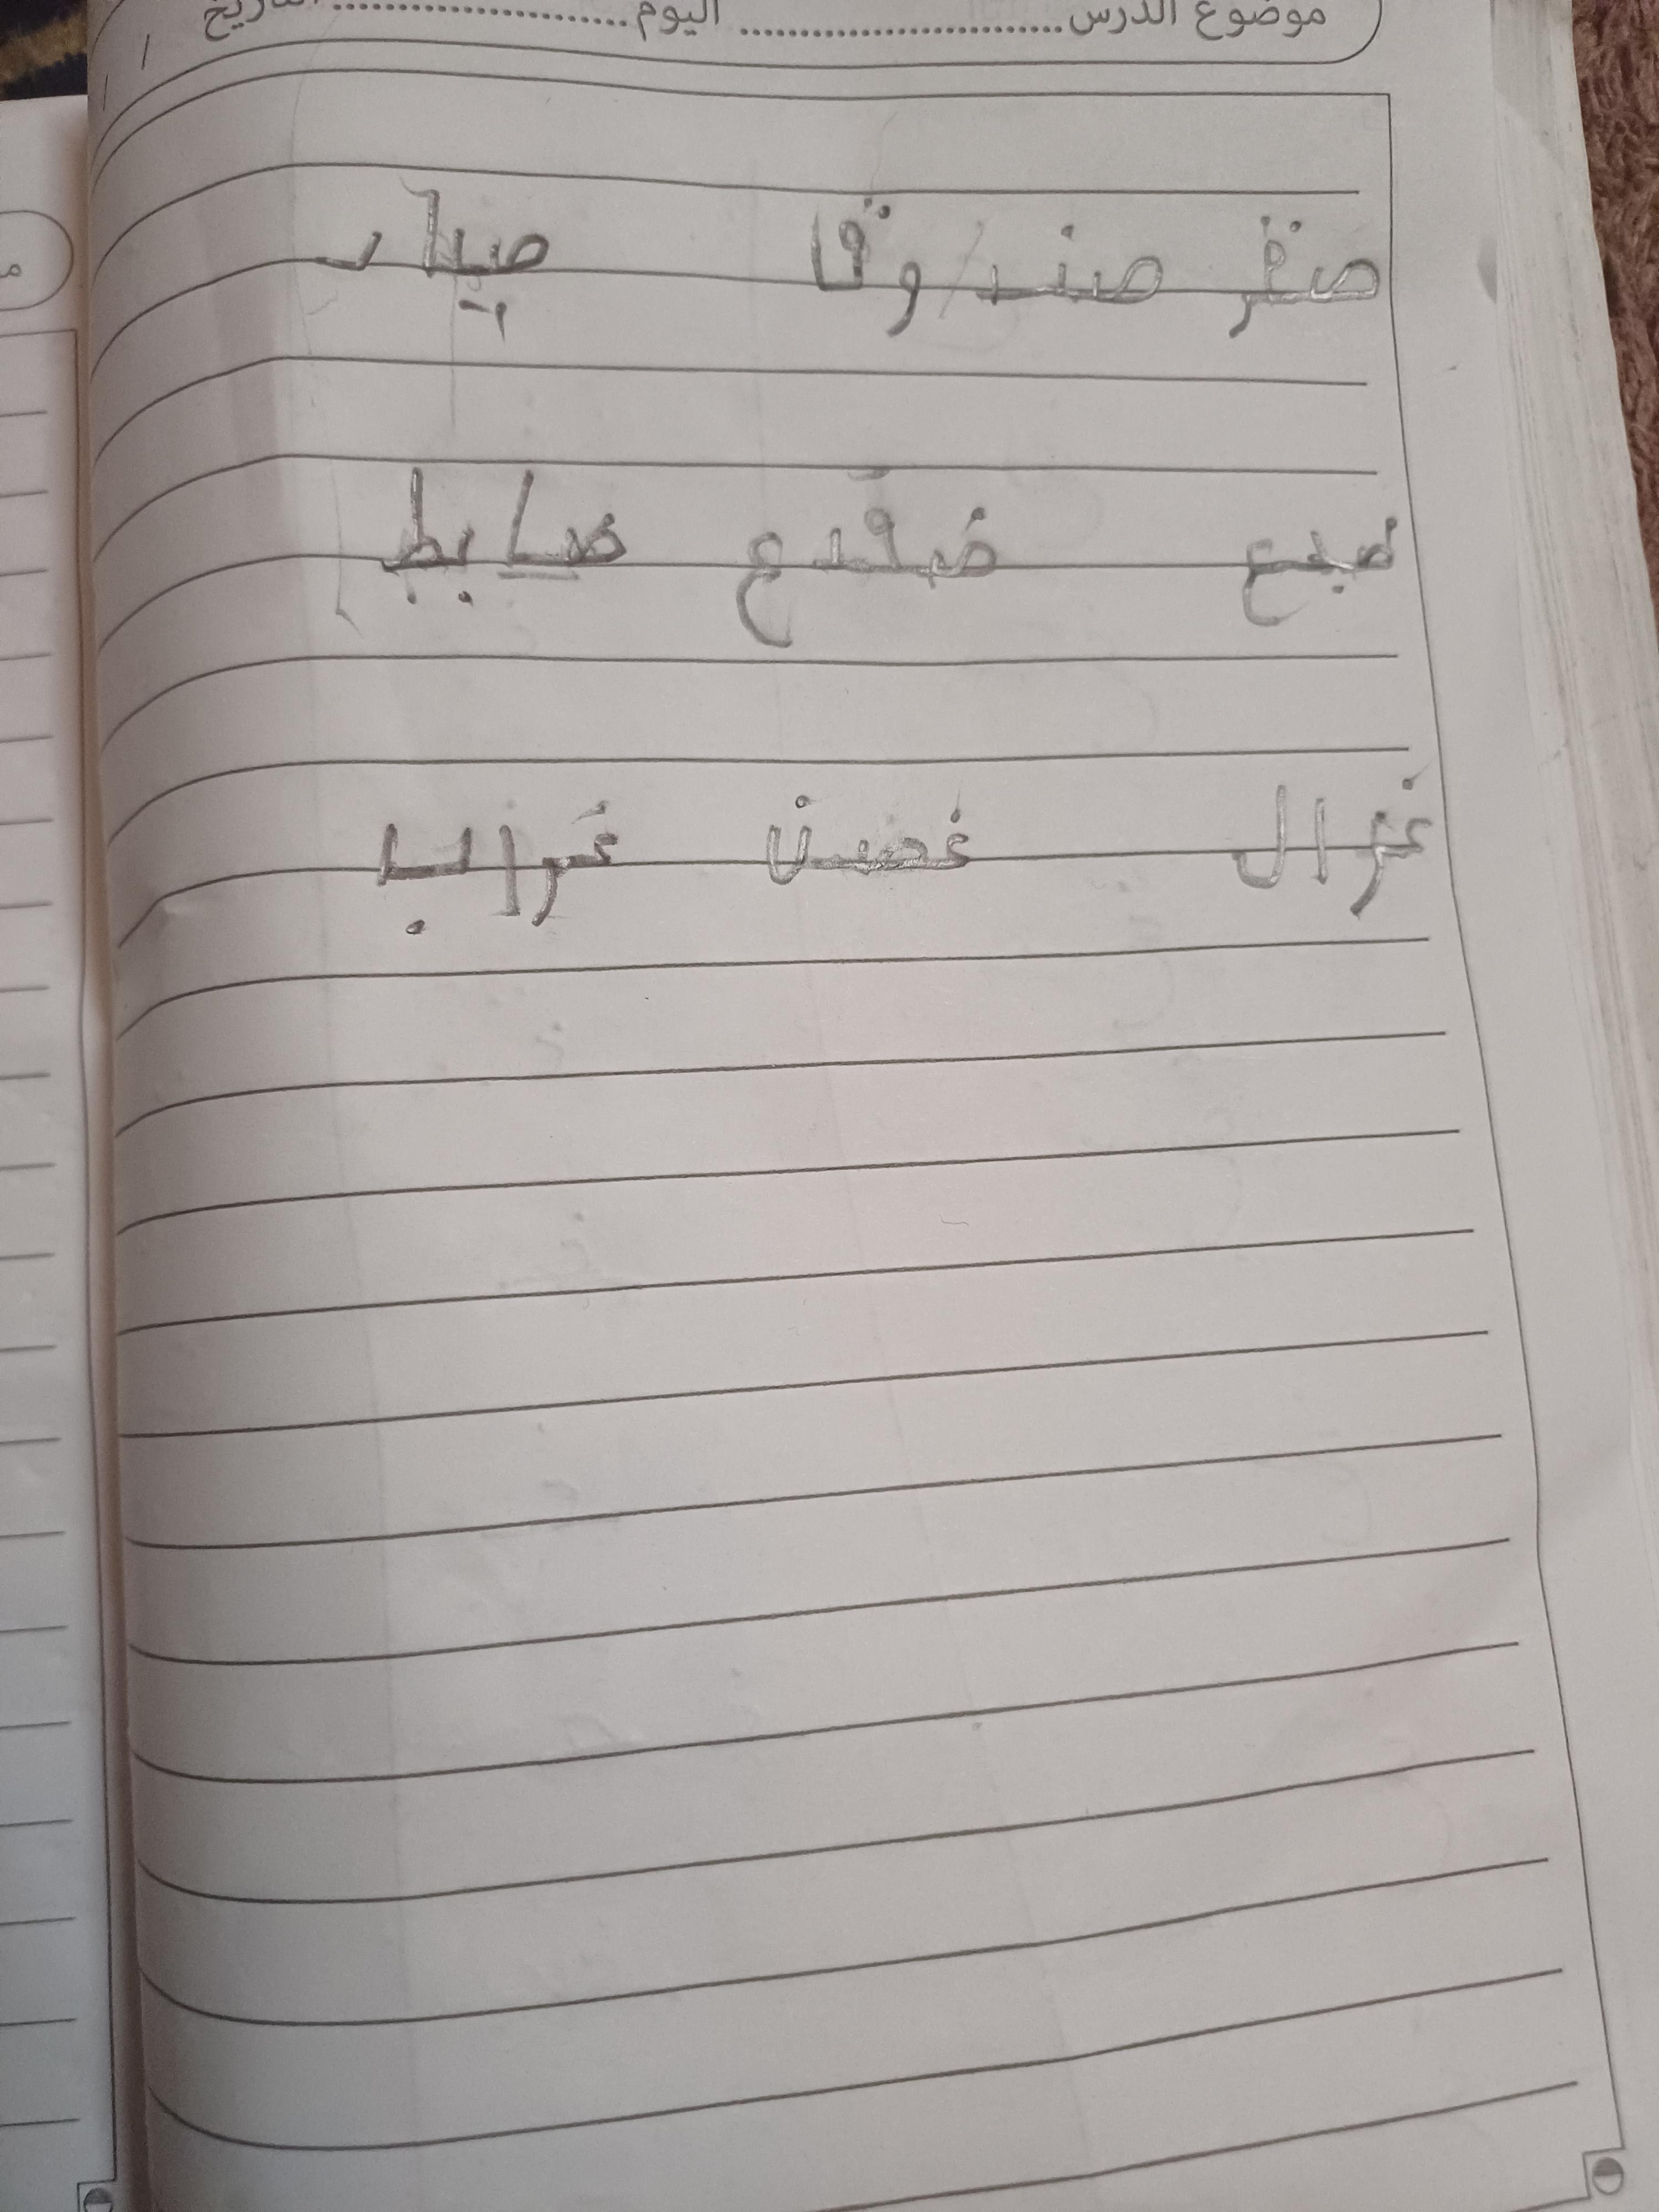 موضوع الدرس اليوم التاريخ
صقر صندوقا صياد
ضبع ضفدع ضابط
غزال غصن غراب